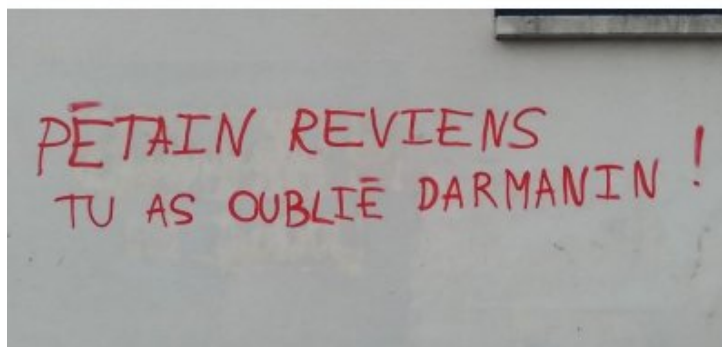 PÉTAIN REVIENS
TU AS OUBLIÉ DARMANIN !